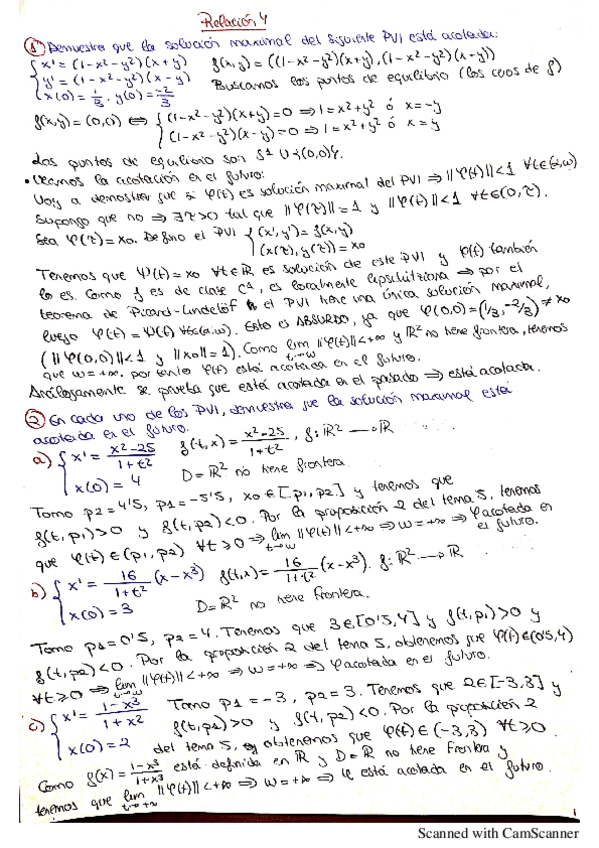 Relación 4
① Demuestra que la solución maximal del siguiente PVI está acotada:
{ x' = (1-x²-y²)(x+y)
y' = (1-x²-y²)(x-y)
x(0) = 1/3, y(0) = -2/3
f(x,y) = ((1-x²-y²)(x+y), (1-x²-y²)(x-y))
Buscamos los puntos de equilibrio (los ceros de f)
f(x,y) = (0,0) ⟺ { (1-x²-y²)(x+y) = 0 ⟹ 1 = x²+y² ó x = -y
(1-x²-y²)(x-y) = 0 ⟹ 1 = x²+y² ó x = y
Los puntos de equilibrio son S¹ ∪ {(0,0)}.
• Veamos la acotación en el futuro:
Voy a demostrar que si φ(t) es solución maximal del PVI ⟹ ||φ(t)|| < 1 ∀t∈(α,ω)
Supongo que no ⟹ ∃τ>0 tal que ||φ(τ)|| = 1 y ||φ(t)|| < 1 ∀t∈(0,τ).
Sea φ(τ) = x₀. Defino el PVI { (x',y') = f(x,y)
(x(τ), y(τ)) = x₀
Tenemos que Ψ(t) = x₀ ∀t∈ℝ es solución de este PVI y φ(t) también
lo es. Como f es de clase C¹, es localmente lipschitziana ⟹ por el
teorema de Picard-Lindelöf el PVI tiene una única solución maximal,
luego φ(t) = Ψ(t) ∀t∈(α,ω). Esto es ABSURDO, ya que φ(0,0) = (1/3, -2/3) ≠ x₀
(||φ(0,0)|| < 1 y ||x₀|| = 1). Como lim t→ω ||φ(t)|| < +∞ y ℝ² no tiene frontera, tenemos
que ω = +∞, por tanto φ(t) está acotada en el futuro.
Análogamente se prueba que está acotada en el pasado ⟹ está acotada.
② En cada uno de los PVI, demuestra que la solución maximal está
acotada en el futuro.
a) { x' = x²-25 / 1+t²
x(0) = 4
f(t,x) = x²-25 / 1+t², f: ℝ² → ℝ
D = ℝ² no tiene frontera.
Tomo p2 = 4'5, p1 = -5'5, x₀∈[p₁,p₂] y tenemos que
f(t,p₁) > 0 y f(t,p₂) < 0. Por la proposición 2 del tema 5, tenemos
que φ(t) ∈ (p₁,p₂) ∀t ≥ 0 ⟹ lim t→ω ||φ(t)|| < +∞ ⟹ ω = +∞ ⟹ φ acotada en
el futuro.
b) { x' = 16 / 1+t² (x-x³)
x(0) = 3
f(t,x) = 16 / 1+t² (x-x³). f: ℝ² → ℝ
D = ℝ² no tiene frontera.
Tomo p1 = 0'5, p2 = 4. Tenemos que 3∈[0'5,4] y f(t,p₁) > 0 y
f(t,p2) < 0. Por la proposición 2 del tema 5, obtenemos que φ(t)∈(0'5,4)
∀t ≥ 0 ⟹ lim t→ω ||φ(t)|| < +∞ ⟹ ω = +∞ ⟹ φ acotada en el futuro.
c) { x' = 1-x³ / 1+x²
x(0) = 2
Tomo p1 = -3, p2 = 3. Tenemos que 2∈[-3,3] y
f(t,p₁) > 0 y f(t,p2) < 0. Por la proposición 2
del tema 5, obtenemos que φ(t) ∈ (-3,3) ∀t ≥ 0.
Como f(x) = 1-x³ / 1+x³ está definida en ℝ y D = ℝ no tiene frontera y
tenemos que lim t→+∞ ||φ(t)|| < +∞ ⟹ ω = +∞ ⟹ φ está acotada en el futuro.
1
Scanned with CamScanner